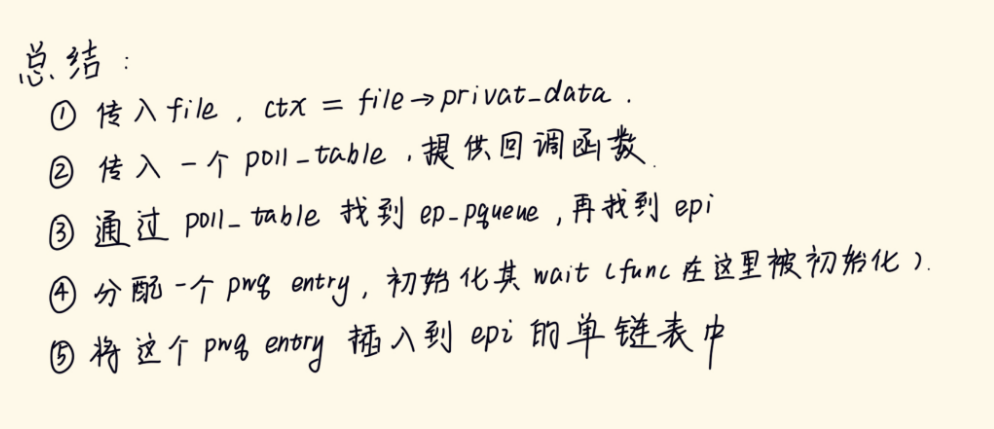 总结:
① 传入file, ctx = file→privat_data.
② 传入一个 poll_table,提供回调函数.
③ 通过 poll_table 找到 ep_pqueue,再找到 epi
④ 分配一个 pwq entry, 初始化其 wait (func 在这里被初始化).
⑤ 将这个 pwq entry 插入到 epi 的单链表中